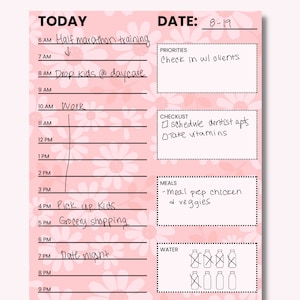 TODAY
6 AM Half marathon training
7 AM
8 AM Drop kids @ daycare
9 AM
10 AM Work
11 AM
12 PM
1 PM
2 PM
3 PM
4 PM Pick up kids
5 PM Grocery shopping
6 PM
7 PM Date night
8 PM
9 PM
DATE: 8-19
PRIORITIES
Check in w/ clients
CHECKLIST
schedule dentist apts
Take vitamins
MEALS
- meal pep chicken
& veggies
WATER